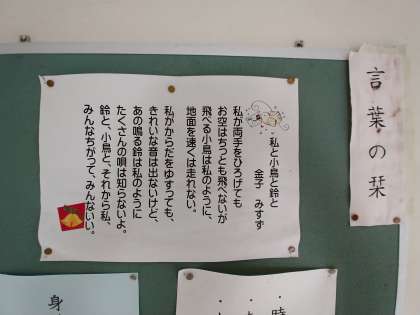 言葉の栞
私と小鳥と鈴と
金子 みすず
私が両手をひろげても
お空はちっとも飛べないが
飛べる小鳥は私のように、
地面を速くは走れない。
私がからだをゆすっても、
きれいな音は出ないけど、
あの鳴る鈴は私のように
たくさんの唄は知らないよ。
鈴と、小鳥と、それから私、
みんなちがって、みんないい。
・時
・
身